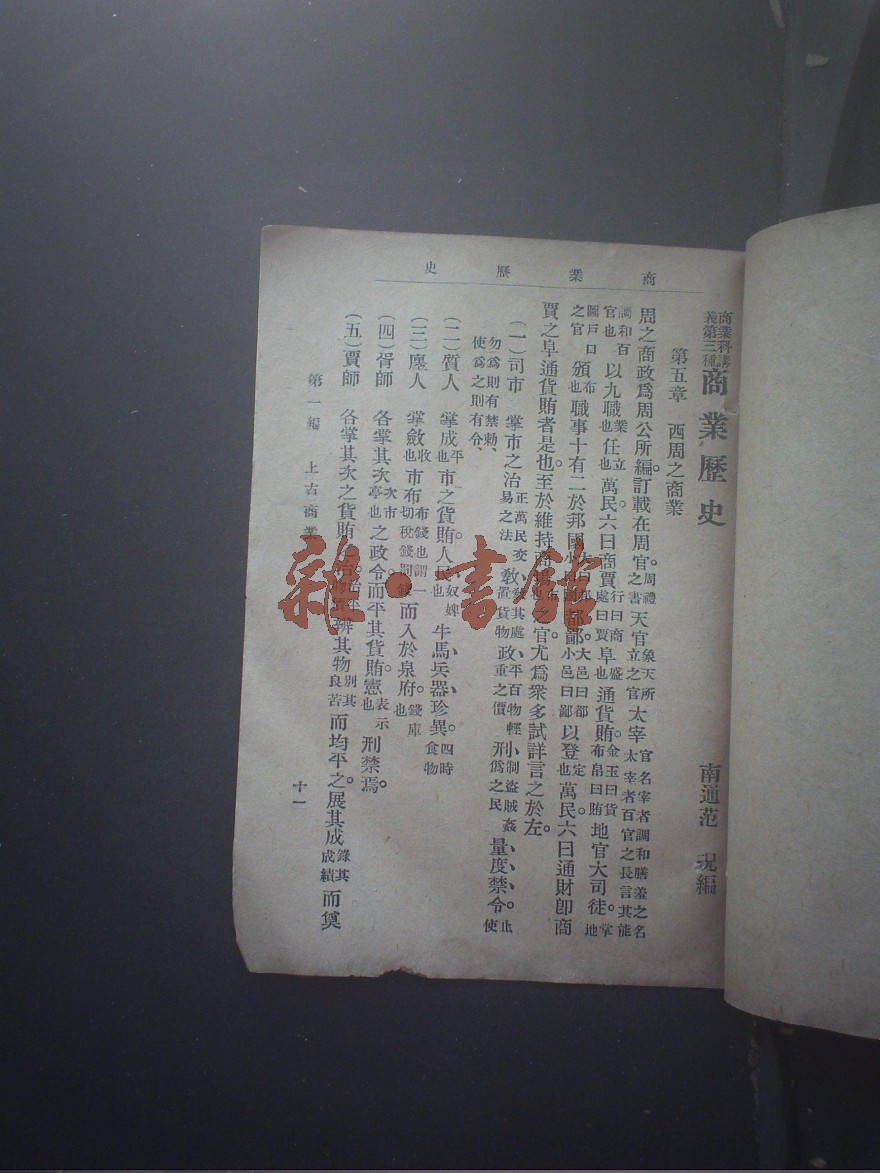 商業歷史
商業科講義第三種 商業歷史 南通范 編
第五章 西周之商業
周之商政爲周公所編訂載在周官。周禮之書天官象天所立之官太宰官名宰者調和膳羞之名太宰者百官之長言其能
調和百官也以九職業也任立也萬民六曰商賈行曰商處曰賈阜盛也通貨賄。金玉曰貨布帛曰賄地官大司徒。掌地
圖戶口之官頒布也職事十有二於邦國大曰邦小曰國都鄙。大邑曰都小邑曰鄙以登定也萬民六曰通財卽商
賈之阜通貨賄者是也。至於維持商之官尤爲衆多試詳言之於左。
(一)司市 掌市之治正萬民交易之法、教教其處置貨物、政平百物輕重之價、刑制盜賊姦僞之民、量度禁令止使
勿爲則有禁勅、使爲之則有令、
(二)質人 掌成平也市之貨賄。人民奴婢、牛馬、兵器、珍異。四時食物
(三)廛人 掌斂收也市布布錢也謂一切稅錢罰錢而入於泉府。錢庫也
(四)胥師 各掌其次次市亭也之政令。而平其貨賄。憲表示也刑禁焉。
(五)賈師 各掌其次之貨賄之治。辨其物別其良苦而均平之。展其成錄其成績而奠
第一編 上古商業 十一
雜·書館